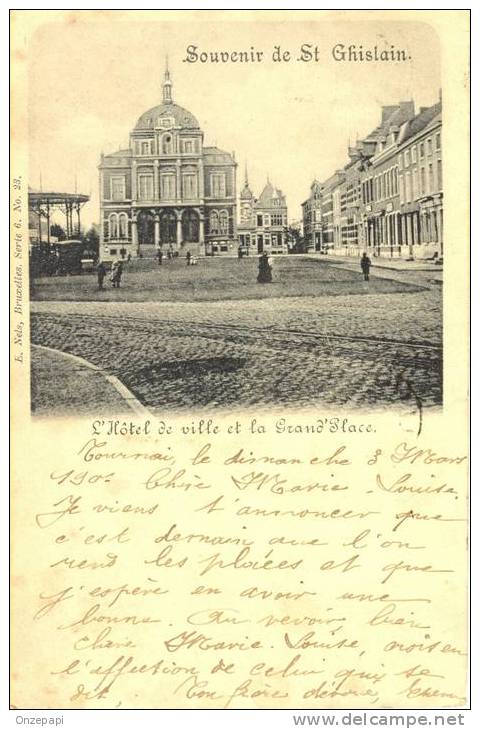 Souvenir de St Ghislain.
E. Nels, Bruxelles. Serie 6. No. 23.
L'Hôtel de ville et la Grand'Place.
Tournai, le dimanche 3 Mars
190 Chère Marie-Louise,
Je viens t'annoncer que
c'est demain que l'on
rend les places et que
j'espère en avoir une
bonne. Au revoir, bien
chère Marie Louise, crois en
l'affection de celui qui se
dit, Ton frère dévoué,
Onzepapi
www.delcampe.net